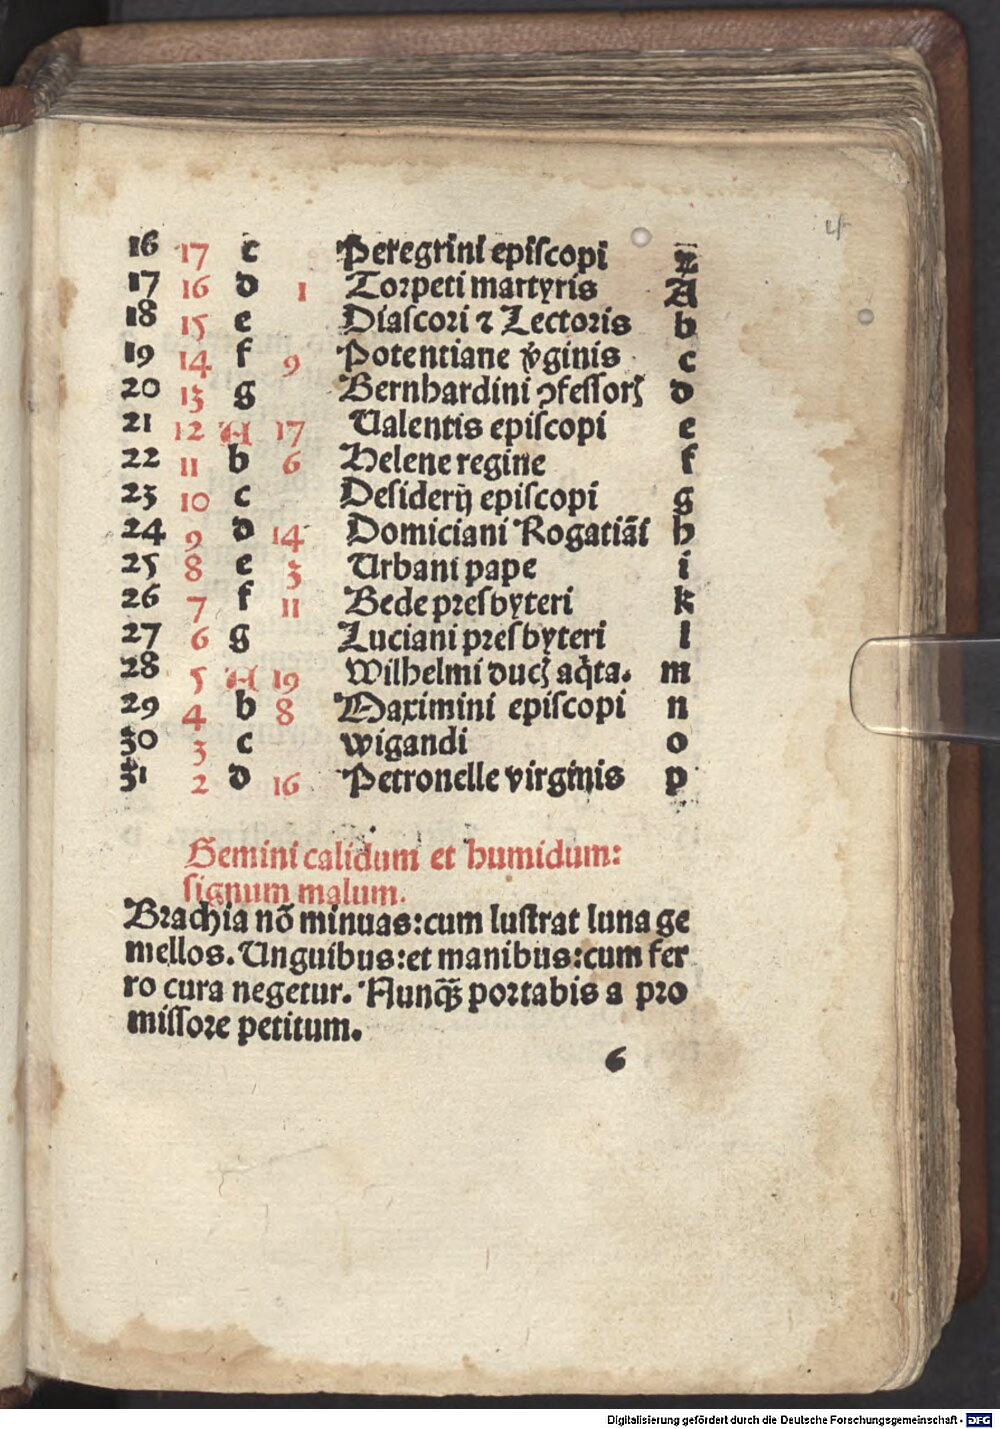 4
16 17 c Peregrini epiſcopi z
17 16 d 1 Torpeti martyris A
18 15 e Diaſcori ⁊ Lectoris b
19 14 f 9 Potentiane v̓ginis c
20 13 g Bernhardini ꝯfeſſorꝭ d
21 12 A 17 Valentis epiſcopi e
22 11 b 6 Helene regine f
23 10 c Deſiderij epiſcopi g
24 9 d 14 Domiciani Rogatiāi h
25 8 e 3 Urbani pape i
26 7 f 11 Bede preſbyteri k
27 6 g Luciani preſbyteri l
28 5 A 19 Wilhelmi ducꝭ aq̄ta. m
29 4 b 8 Maximini epiſcopi n
30 3 c wigandi o
31 2 d 16 Petronelle virginis p
Gemini calidum et humidum:
ſignum malum.
Brachia nō minuas: cum luſtrat luna ge
mellos. Unguibus: et manibus: cum fer
ro cura negetur. Nunqꝫ portabis a pro
miſſore petitum.
6
Digitalisierung gefördert durch die Deutsche Forschungsgemeinschaft - DFG